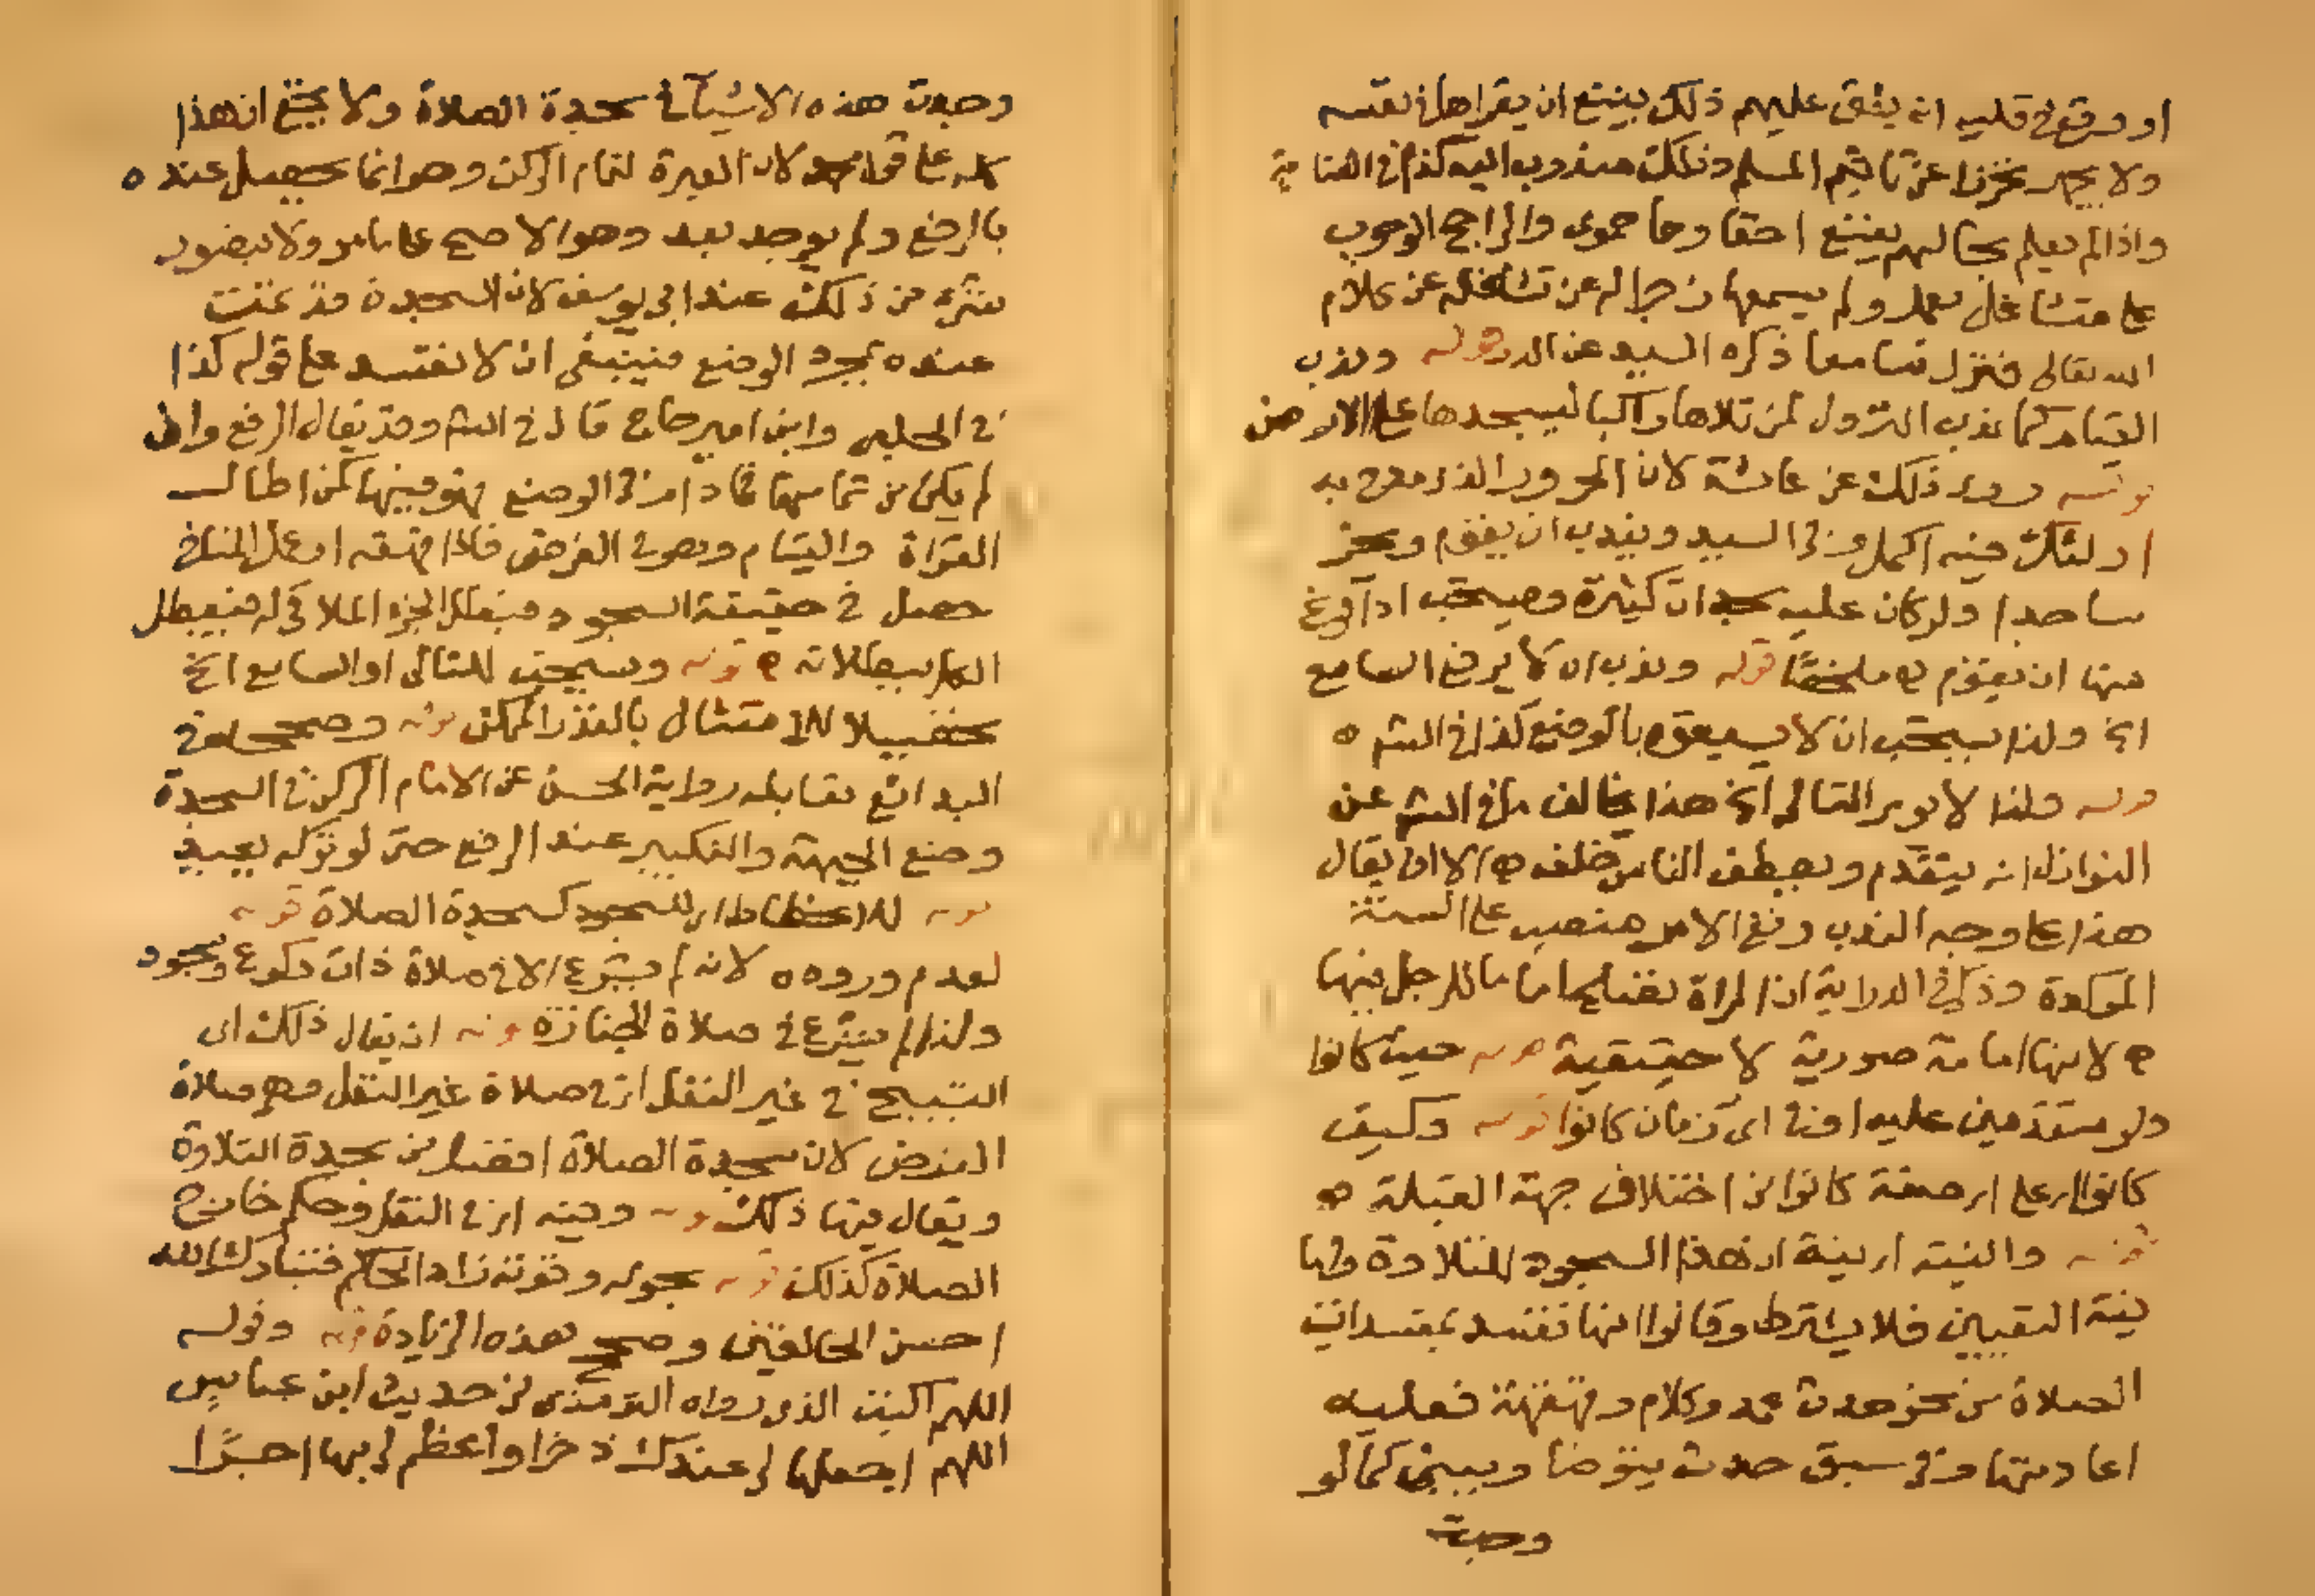 او وقع في قلبه انه يشق عليهم ذلك ينبغي ان يقراها في نفسه
ولا يجهر تحرزا عن تاثيم المسلم وذلك مندوب اليه كذا في العناية
واذا لم يعلم بحالهم ينبغي اخفاوها حموى والراجح الوجوب
على متشاغل بعمل ولم يسمعها زجرا له عن تشاغله عن كلام
الله تعالى فنزل سامعا ذكره السيد عن الدر قوله وندب
القيام كما ندب النزول لمن تلاها راكبا ليسجدها على الارض
قوله روى ذلك عن عائشة لان الخرور الذي مدح به
اولئك فيه اكمل وفي السيد ويندب ان يقوم ويخر
ساجدا ولو كان عليه سجدات كثيرة ويستحب اذا فرغ
منها ان يقوم ه ملخصا قوله وندب ان لا يرفع السامع
الخ ولذا يستحب ان لا يسبقوه بالوضع كذا في الشر ه
قوله ولذا لا يومر التالي الخ هذا يخالف ما في الشر عن
النوازل انه يتقدم ويصطف الناس خلفه ه الا ان يقال
هذا على وجه الندب ونفي الامر منصب على السنة
الموكدة وذكر في الدراية ان المراة تصلح اماما للرجل فيها
ه لانها امامة صورية لا حقيقية قوله حيث كانوا
ولو متقدمين عليه او في اي زمان كانوا قوله وكيف
كانوا اي على اي صفة كانوا من اختلاف جهة القبلة ه
قوله والنية اي نية ان هذا السجود للتلاوة واما
نية التعيين فلا يشترط وقالوا انها تفسد بمفسدات
الصلاة من نحو حدث عمد وكلام وقهقهة فعليه
اعادتها وفي سبق حدث يتوضا ويبني كما لو
وجدت
وجدت هذه الاشيآ في سجدة الصلاة ولا يخفى ان هذا
كله على قول محمد لان العبرة لتمام الركن وهو انما يحصل عنده
بالرفع ولم يوجد بعد وهو الاصح على ما مر ولا يتصور
شئ من ذلك عند ابي يوسف لان السجدة قد تمت
عنده بمجرد الوضع فينبغي ان لا تفسد على قوله كذا
في الحلبي وابن امير حاج قال في الشر وقد يقال الرفع وان
لم يكن من تمامها فما دام في الوضع فهو فيها كمن اطال
القراة والقيام وهو في الفرض فاذا قهقه او عمل المنافي
حصل في حقيقة السجود فيبطل الجزء الملاقي له فيبطل
الكل ببطلانه ه قوله ويستحب للتالي او السامع الخ
تحصيلا للامتثال بالقدر الممكن قوله وصححه في
البدائع مقابله رواية الحسن عن الامام الركن في السجدة
وضع الجبهة والتكبير عند الرفع حتى لو تركه يعيد
قوله للانحطاط اي للسجود كسجدة الصلاة قوله
لعدم وروده لانه لم يشرع الا في صلاة ذات ركوع وسجود
ولذا لم يشرع في صلاة الجنازة قوله ان يقال ذلك اى
التسبيح في غير النفل اي في صلاة غير النفل وهو صلاة
الفرض لان سجدة الصلاة افضل من سجدة التلاوة
ويقال فيها ذلك قوله وفيه اي في النفل وحكم خارج
الصلاة كذلك قوله بحوله وقوته زاد الحاكم فتبارك الله
احسن الخالقين وصحح هذه الزيادة قوله وقوله
اللهم اكتب الذي رواه الترمذي من حديث ابن عباس
اللهم اجعلها لي عندك ذخرا واعظم لي بها اجرا